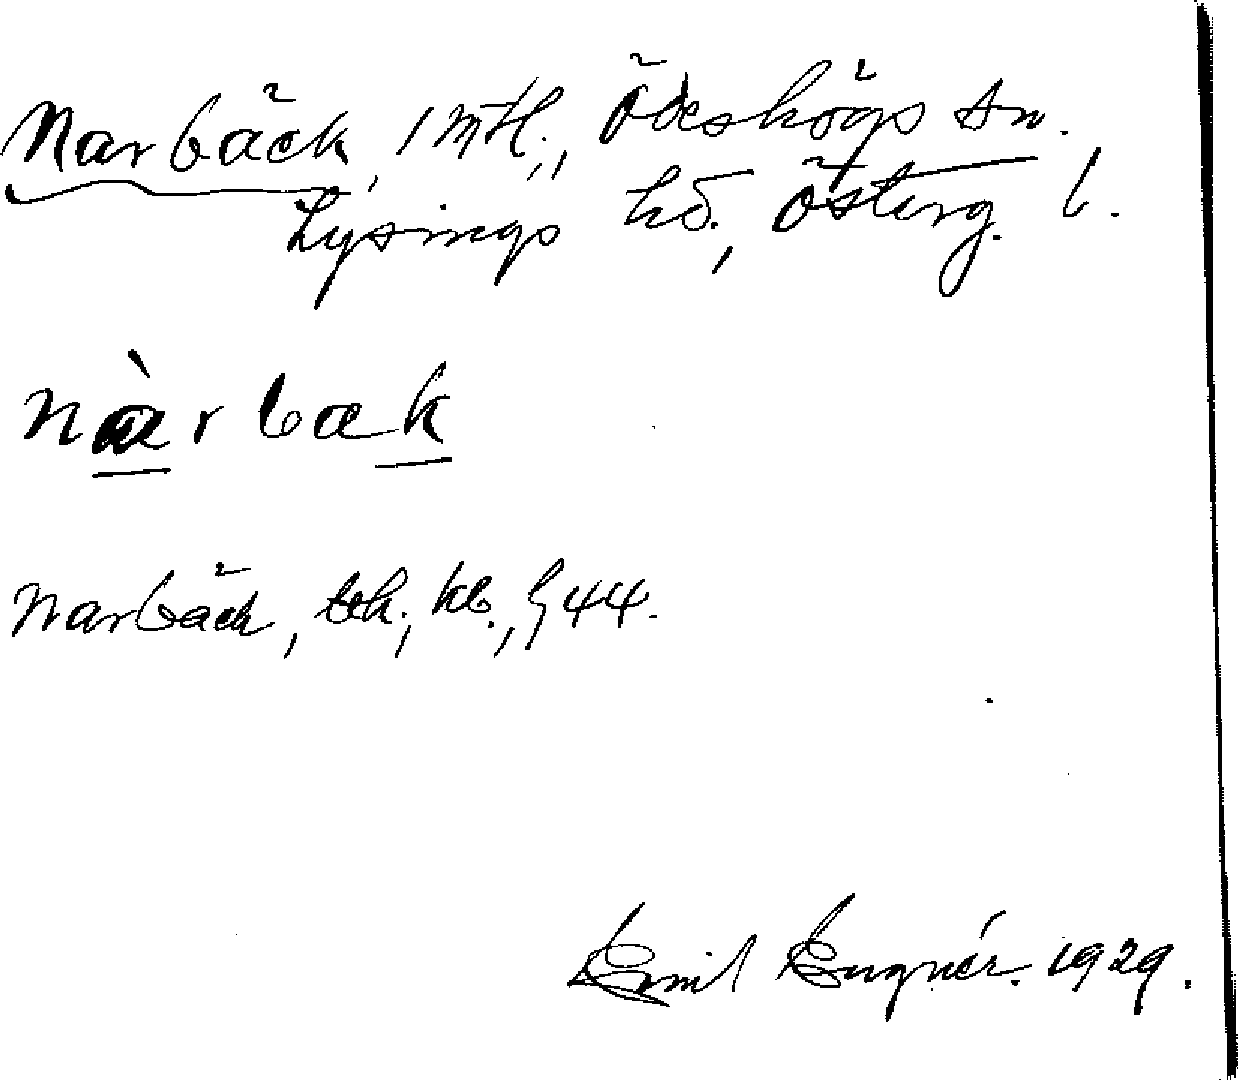 Narbäck, 1 mtl., Ödeshögs sn.
Lysings hd., Österg. l.
nàrbæk
Narbäck, lek., kb., § 44.
Emil Eugnér. 1929.